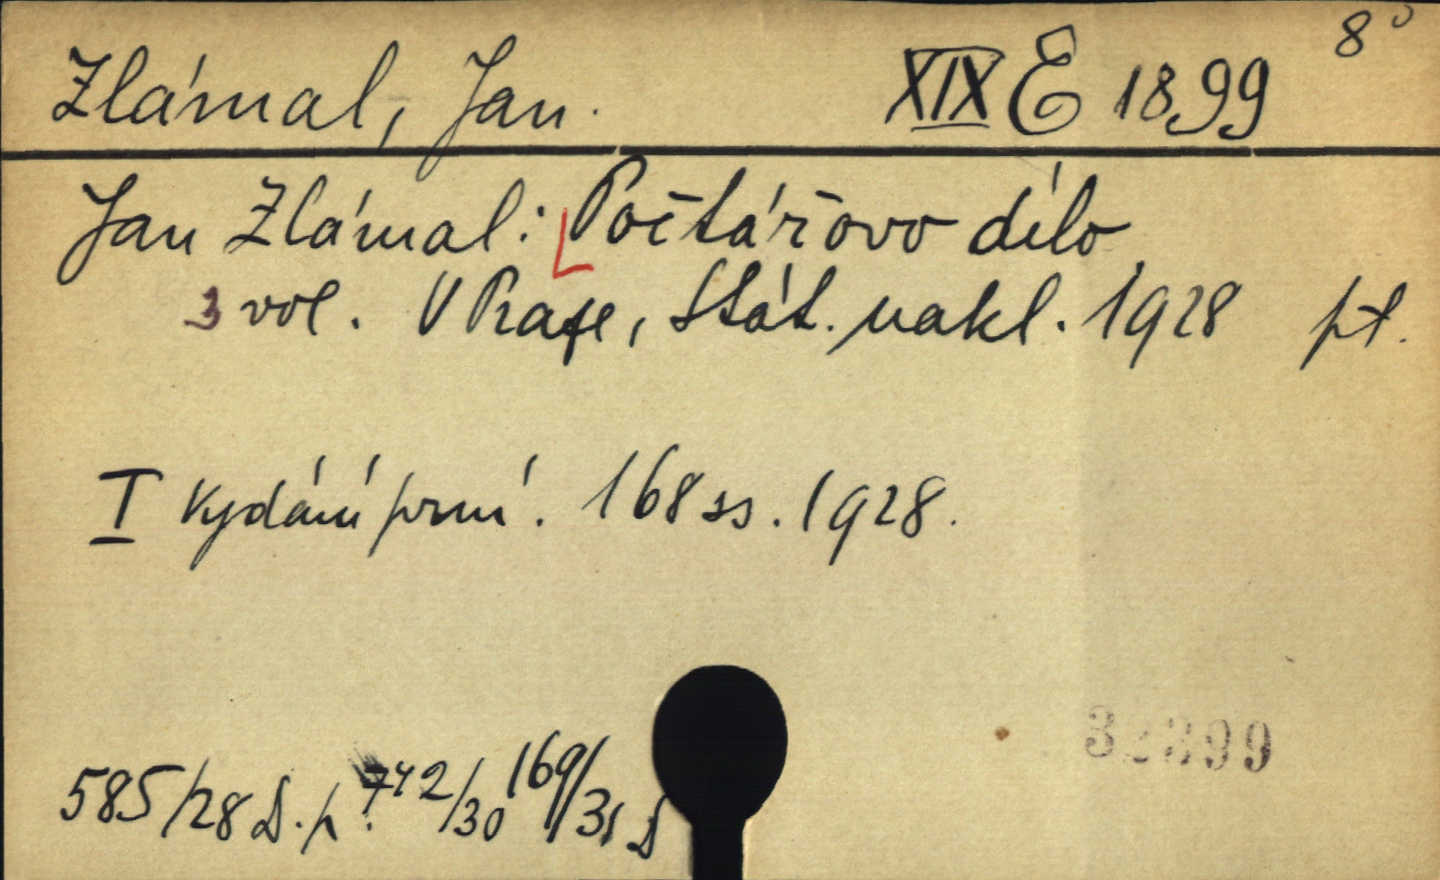 Zlámal, Jan. XIX E 1899 8°
Jan Zlámal: Počtářovo dílo
3 vol. V Praze, Stát. nakl. 1928 pt.
I Vydání první. 168 ss. 1928.
585/28 D. p. 742/30 169/31 D